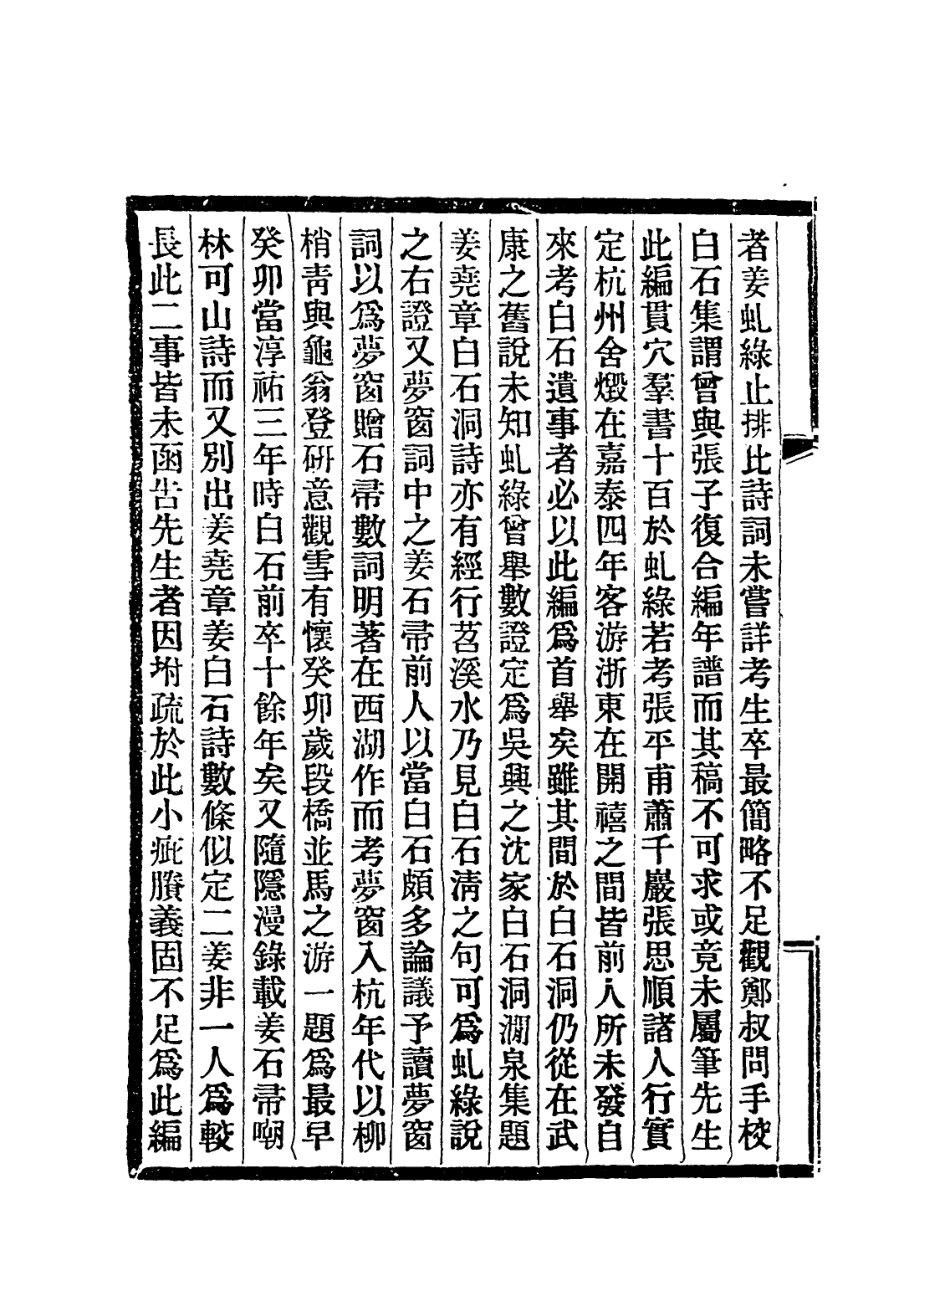 者姜虬綠止排比詩詞未嘗詳考生卒最簡略不足觀鄭叔問手校
白石集謂曾與張子復合編年譜而其稿不可求或竟未屬筆先生
此編貫穴羣書十百於虬綠若考張平甫蕭千巖張思順諸人行實
定杭州舍燬在嘉泰四年客游浙東在開禧之間皆前人所未發自
來考白石遺事者必以此編爲首舉矣雖其間於白石洞仍從在武
康之舊說未知虬綠曾舉數證定爲吳興之沈家白石洞澗泉集題
姜堯章白石洞詩亦有經行苕溪水乃見白石淸之句可爲虬綠說
之右證又夢窗詞中之姜石帚前人以當白石頗多論議予讀夢窗
詞以爲夢窗贈石帚數詞明著在西湖作而考夢窗入杭年代以柳
梢靑與龜翁登研意觀雪有懷癸卯歲段橋並馬之游一題爲最早
癸卯當淳祐三年時白石前卒十餘年矣又隨隱漫錄載姜石帚嘲
林可山詩而又別出姜堯章姜白石詩數條似定二姜非一人爲較
長此二事皆未函告先生者因坿疏於此小疵賸義固不足爲此編